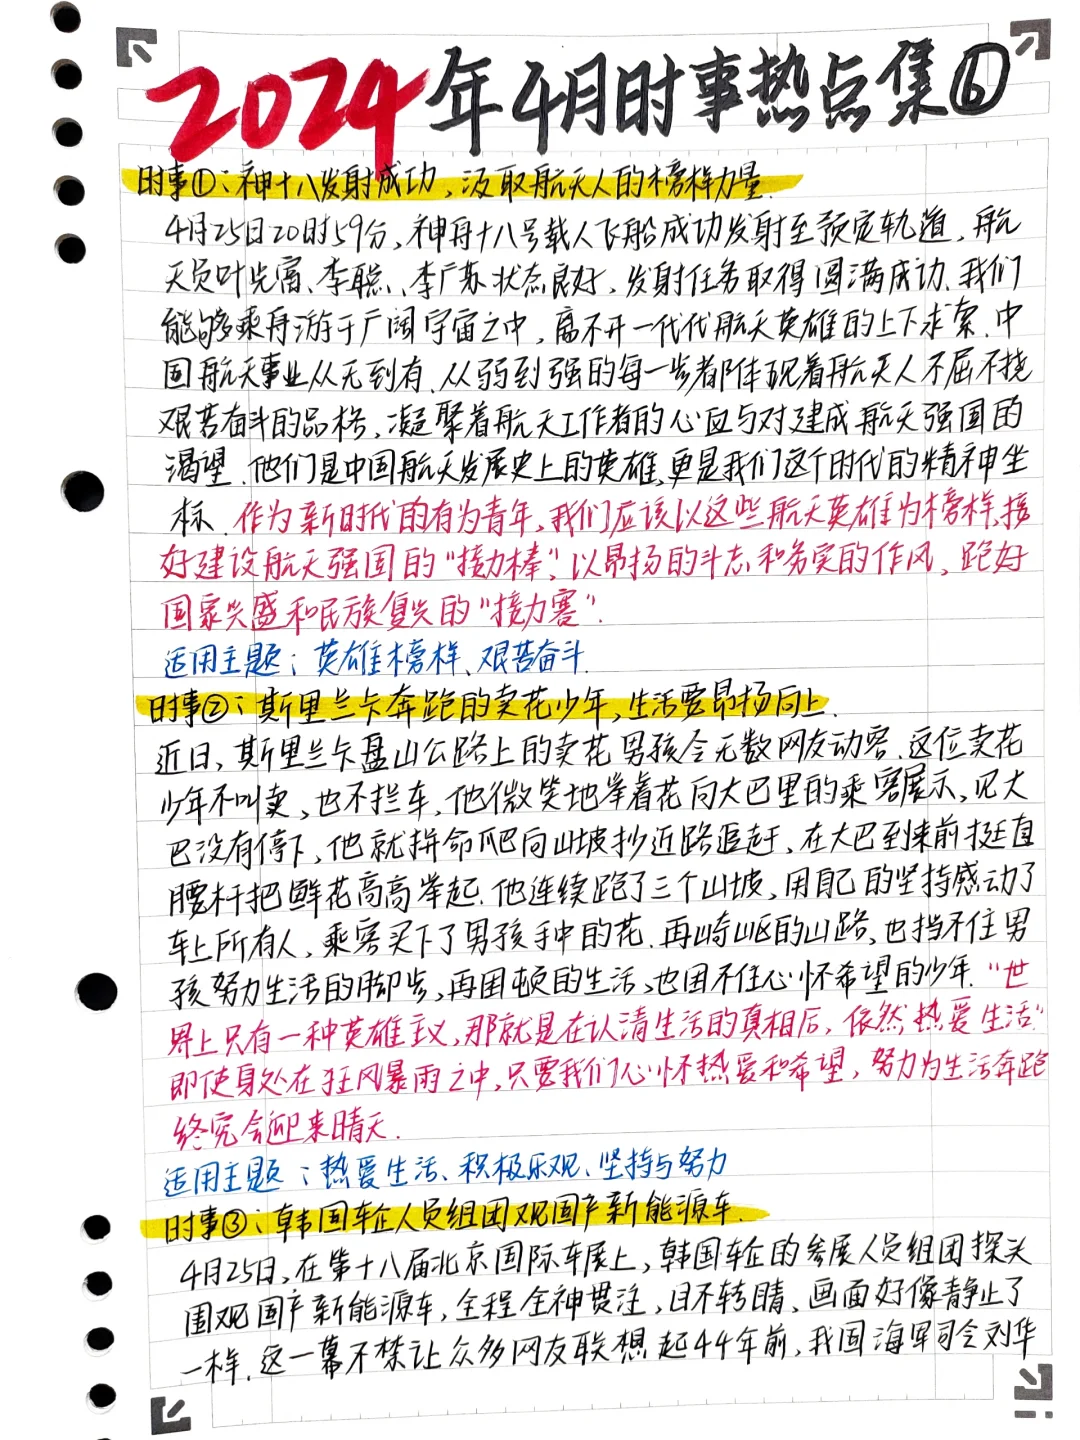 2024年4月时事热点集⑥
时事①:神十八发射成功,汲取航天人的榜样力量.
4月25日20时59分,神舟十八号载人飞船成功发射至预定轨道,航
天员叶光富、李聪、李广苏状态良好,发射任务取得圆满成功.我们
能够乘舟游于广阔宇宙之中,离不开一代代航天英雄的上下求索.中
国航天事业从无到有、从弱到强的每一步都体现着航天人不屈不挠
艰苦奋斗的品格、凝聚着航天工作者的心血与对建成航天强国的
渴望.他们是中国航天发展史上的英雄,更是我们这个时代的精神坐
标.作为新时代的有为青年,我们应该以这些航天英雄为榜样,接
好建设航天强国的“接力棒”,以昂扬的斗志和务实的作风,跑好
国家兴盛和民族复兴的“接力赛”.
适用主题:英雄榜样、艰苦奋斗.
时事②:斯里兰卡奔跑的卖花少年,生活要昂扬向上.
近日,斯里兰卡盘山公路上的卖花男孩令无数网友动容.这位卖花
少年不叫卖,也不拦车,他微笑地举着花向大巴里的乘客展示,见大
巴没有停下,他就拼命爬向山坡抄近路追赶,在大巴到来前挺直
腰杆把鲜花高高举起.他连续跑了三个山坡,用自己的坚持感动了
车上所有人,乘客买下了男孩手中的花.再崎岖的山路,也挡不住男
孩努力生活的脚步,再困顿的生活,也困不住心怀希望的少年.“世
界上只有一种英雄主义,那就是在认清生活的真相后,依然热爱生活”
即使身处在狂风暴雨之中,只要我们心怀热爱和希望,努力为生活奔跑
终究会迎来晴天.
适用主题:热爱生活、积极乐观、坚持与努力
时事③:韩国车企人员组团观国产新能源车.
4月25日,在第十八届北京国际车展上,韩国车企的参展人员组团探头
围观国产新能源车,全程全神贯注,目不转睛、画面好像静止了
一样.这一幕不禁让众多网友联想起44年前,我国海军司令刘华